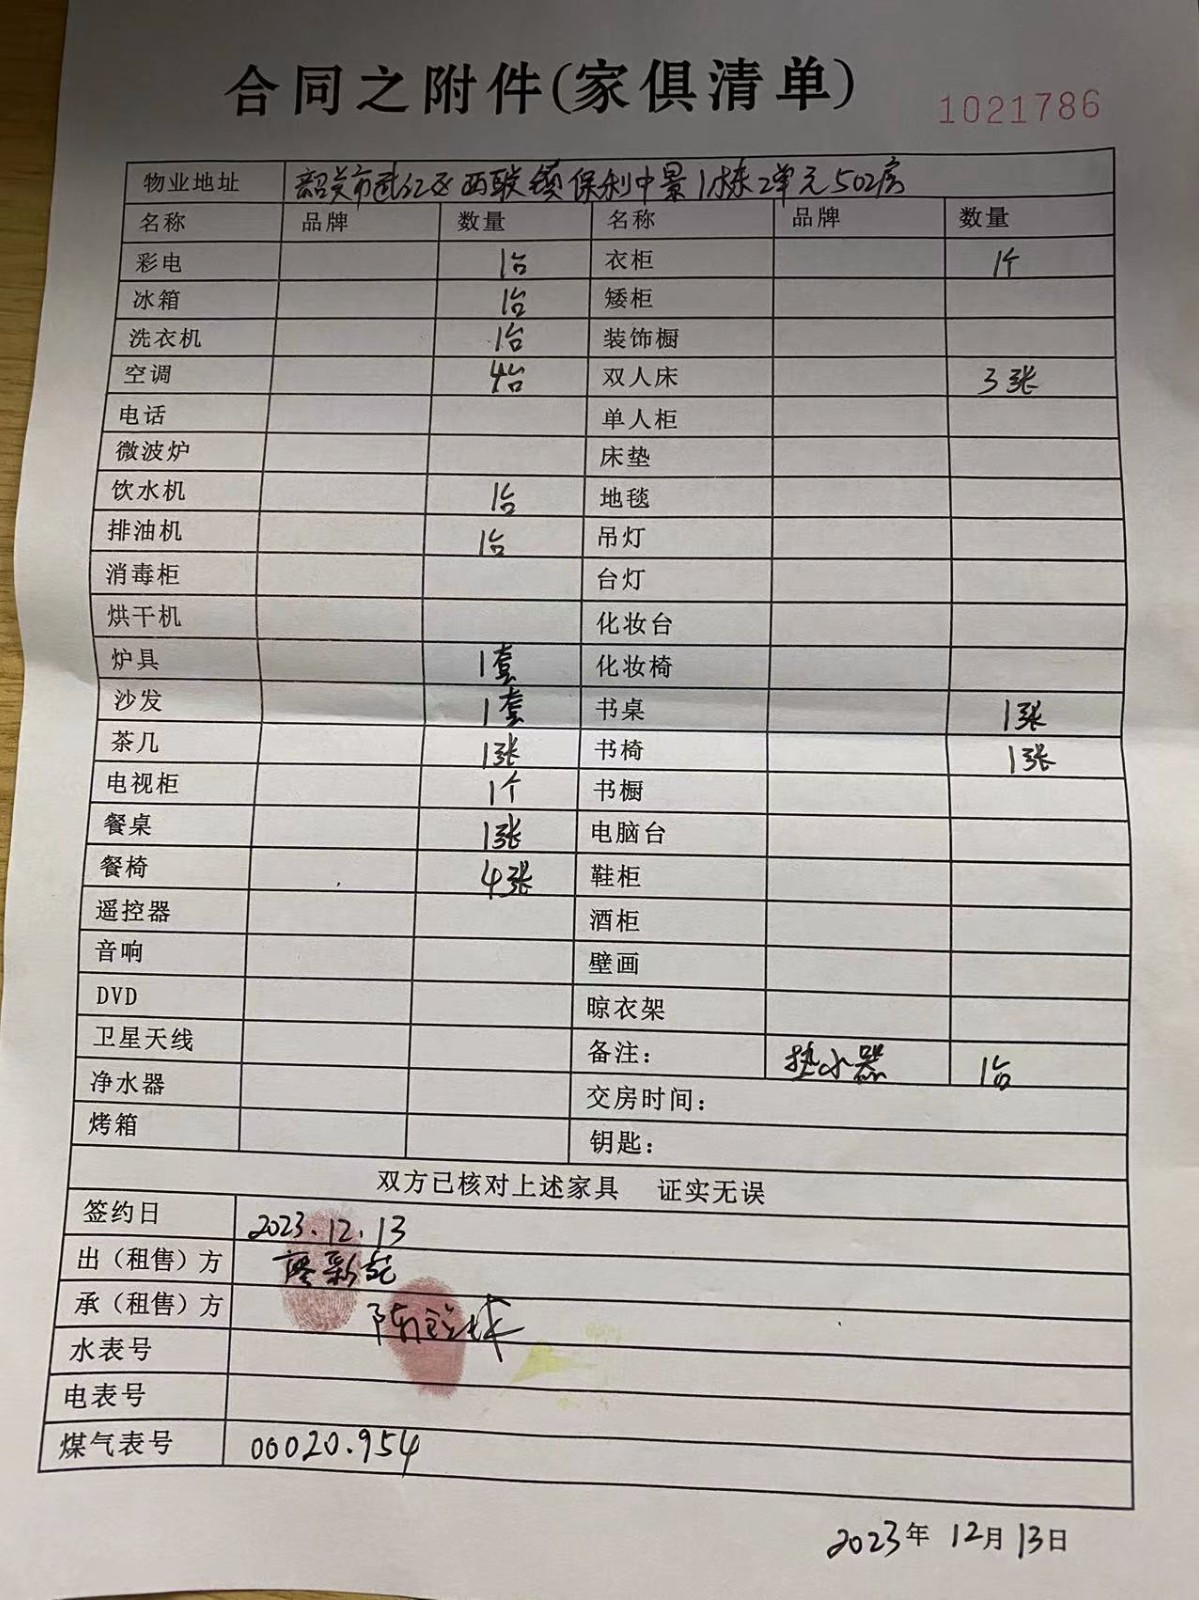 合同之附件(家俱清单)
1021786
物业地址 韶关市武江区西联镇保利中景1栋2单元502房
名称 品牌 数量 名称 品牌 数量
彩电 1台 衣柜 1个
冰箱 1台 矮柜
洗衣机 1台 装饰橱
空调 4台 双人床 3张
电话 单人柜
微波炉 床垫
饮水机 1台 地毯
排油机 1台 吊灯
消毒柜 台灯
烘干机 化妆台
炉具 1套 化妆椅
沙发 1套 书桌 1张
茶几 1张 书椅 1张
电视柜 1个 书橱
餐桌 1张 电脑台
餐椅 4张 鞋柜
遥控器 酒柜
音响 壁画
DVD 晾衣架
卫星天线 备注: 热水器 1台
净水器 交房时间:
烤箱 钥匙:
双方已核对上述家具 证实无误
签约日 2023.12.13
出(租售)方
承(租售)方
水表号
电表号
煤气表号 00020.954
2023年 12月 13日